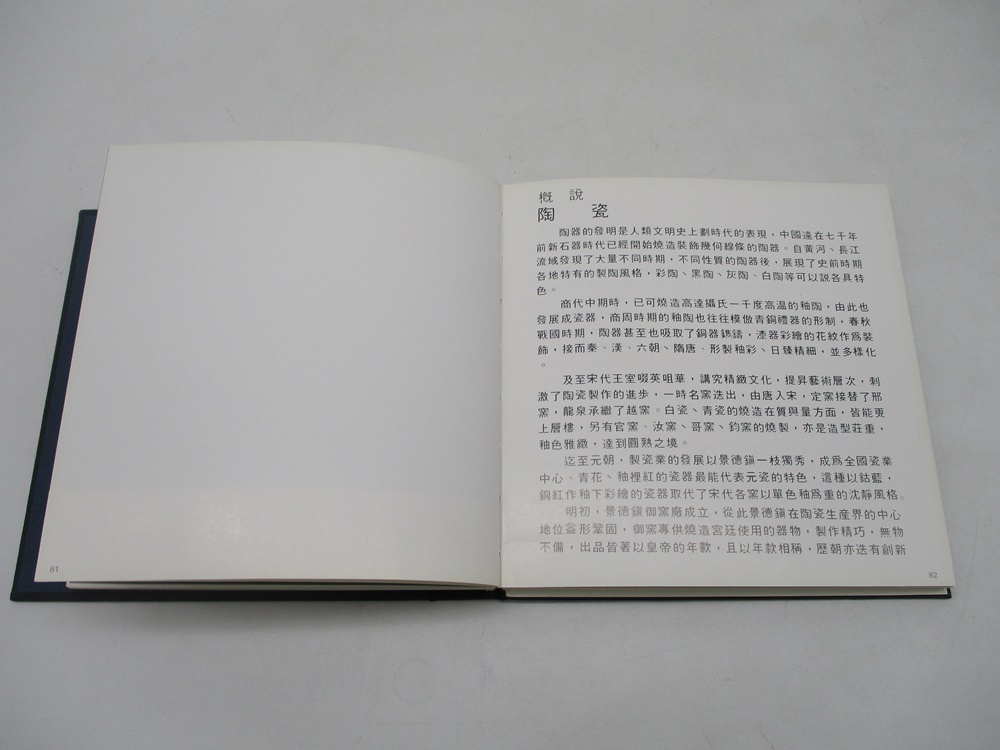 概 說
陶 瓷
陶器的發明是人類文明史上劃時代的表現，中國遠在七千年
前新石器時代已經開始燒造裝飾幾何線條的陶器。自黃河、長江
流域發現了大量不同時期，不同性質的陶器後，展現了史前時期
各地特有的製陶風格，彩陶、黑陶、灰陶、白陶等可以說各具特
色。
商代中期時，已可燒造高達攝氏一千度高温的釉陶，由此也
發展成瓷器，商周時期的釉陶也往往模倣青銅禮器的形制，春秋
戰國時期，陶器甚至也吸取了銅器鐫鑄，漆器彩繪的花紋作爲裝
飾，接而秦、漢、六朝、隋唐、形製釉彩、日臻精細，並多樣化
。
及至宋代王室啜英咀華，講究精緻文化，提昇藝術層次，刺
激了陶瓷製作的進步，一時名窯迭出，由唐入宋，定窯接替了邢
窯，龍泉承繼了越窯。白瓷、青瓷的燒造在質與量方面，皆能更
上層樓，另有官窯、汝窯、哥窯、鈞窯的燒製，亦是造型莊重，
秞色雅緻，達到圓熟之境。
迄至元朝，製瓷業的發展以景德鎭一枝獨秀，成爲全國瓷業
中心、青花、秞裡紅的瓷器最能代表元瓷的特色，這種以鈷藍，
銅紅作釉下彩繪的瓷器取代了宋代各窯以單色秞爲重的沈靜風格。
明初，景德鎭御窯廠成立，從此景德鎭在陶瓷生產界的中心
地位益形鞏固，御窯專供燒造宮廷使用的器物，製作精巧，無物
不備，出品皆著以皇帝的年款，且以年款相稱，歷朝亦迭有創新
81
82